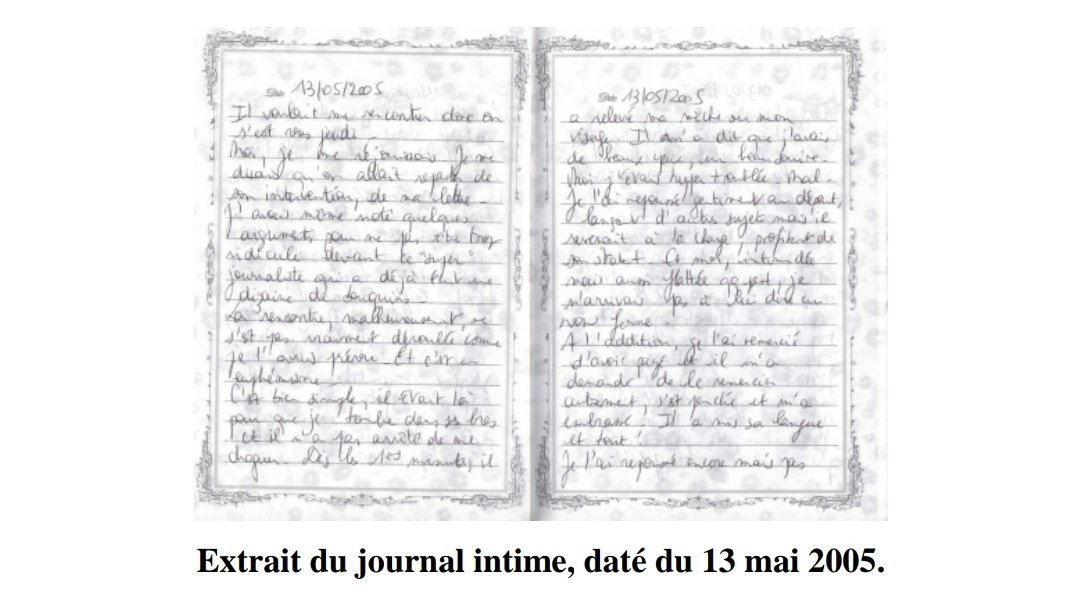 13/05/2005
Il voulait me rencontrer donc on
s'est vus jeudi.
Moi, je me réjouissais. Je me
disais qu'on allait reparler de
son intervention, de ma lettre.
J'avais même noté quelques
arguments pour ne pas être trop
ridicule devant ce "super"
journaliste qui a déjà écrit une
dizaine de bouquins.
La rencontre, malheureusement, ne
s'est pas vraiment déroulée comme
je l'avais prévu. Et c'est un
euphémisme.
C'est bien simple, il était là
pour que je tombe dans ses bras
et il n'a pas arrêté de me
draguer. Dès les 1ères minutes, il
13/05/2005
a relevé ma mèche sur mon
visage. Il m'a dit que j'avais
de beaux yeux, un beau sourire.
Moi j'étais hyper troublée. Mal.
Je l'ai repoussé gentiment au départ,
lançant d'autres sujets mais il
revenait à la charge, profitant de
son statut. Et moi, intimidée
mais aussi flattée au départ, je
n'arrivais pas à lui dire un
non ferme.
A l'addition, je l'ai remercié
d'avoir payé et il m'a
demandé de le remercier
autrement, s'est penché et m'a
embrassé. Il a mis sa langue
et tout !
Je l'ai repoussé encore mais pas
Extrait du journal intime, daté du 13 mai 2005.